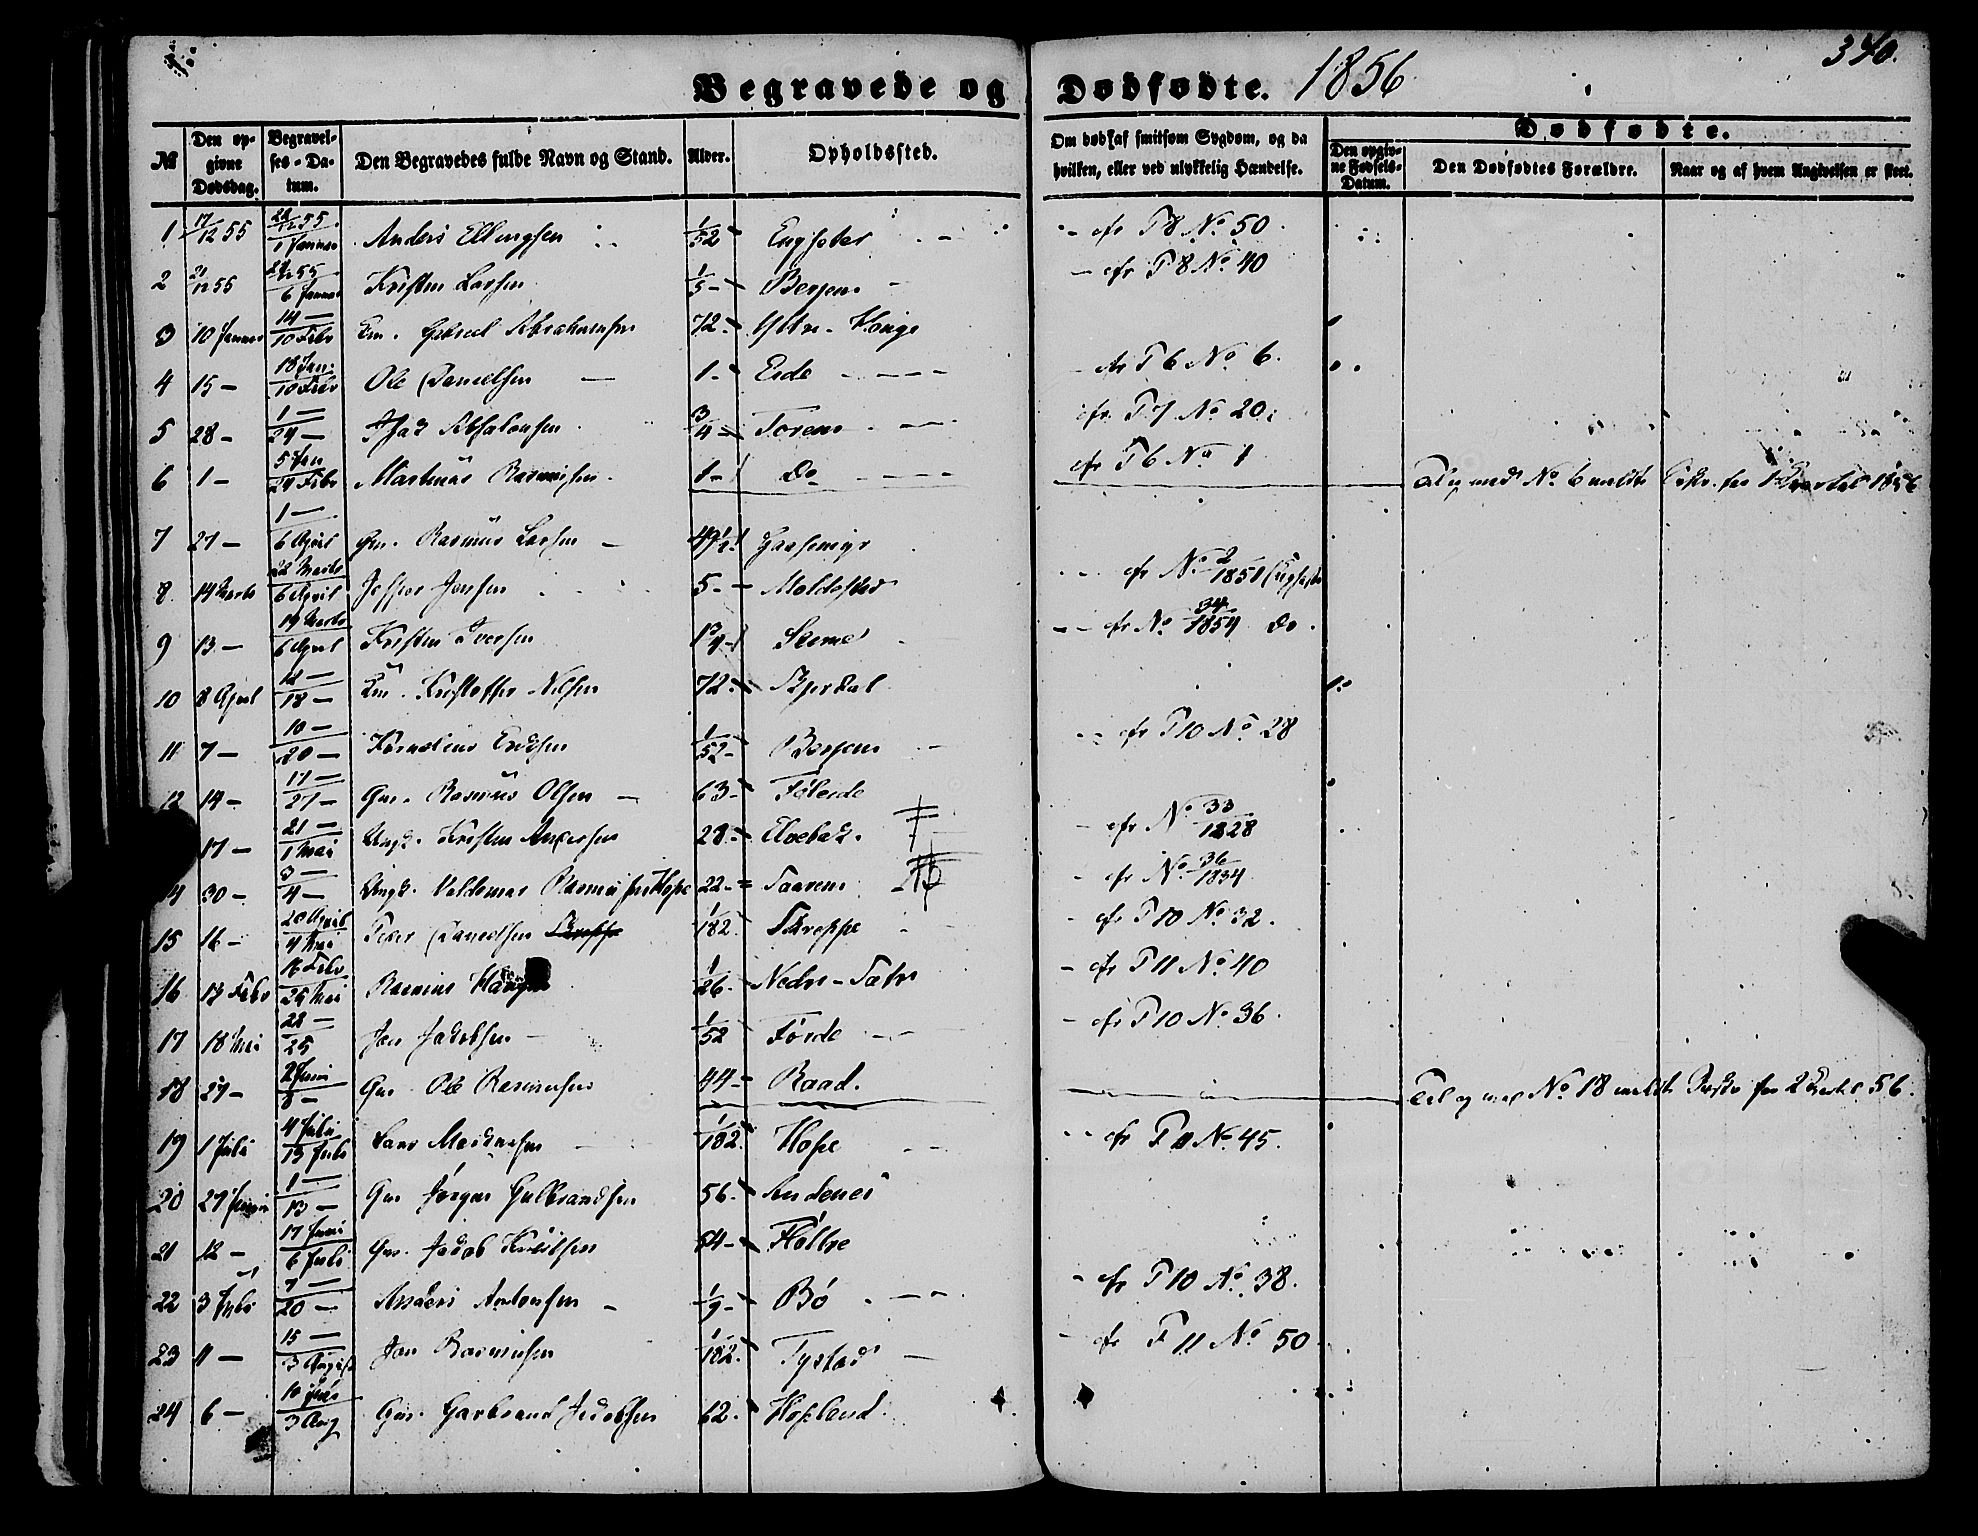 340.
Begravede og Dødfødte. 1856
№ | Den opgivne Dødsdag. | Begravelses-Datum. | Den Begravedes fulde Navn og Stand. | Alder. | Opholdssted. | Om død af smitsom Sygdom, og da hvilken, eller ved ulykkelig Hændelse. | Dødfødte. | Den opgivne Fødsels-Datum. | Den Dødfødtes Forældre. | Naar og af hvem Angivelsen er skeet.
1 | 17/12 55 | 22/12 55 / 1 Januar | Anders Ellingsen | 1/52 | Engseter | cfr F8 No 50
2 | 21/12 55 | 55 / 6 Januar | Kristen Larsen | 1/5 | Bergem | cfr F8 No 40
3 | 10 Januar | 14 — / 10 Febr | Em. Gabriel Abrahamsen | 72 | Yttre-Houge
4 | 15 — | 18 Jan: / 10 Febr | Ole Danielsen | 1 | Eide | cfr F6 No 6.
5 | 28 — | 1 — / 24 — | Isak Absalonsen | 3/4 | Torem | cfr F7 No 20
6 | 1 — | 5 Jan / 24 Febr | Martinus Rasmusen | 1 | Do | cfr F6 No 1 | Til og med No 6 meldt Sskr. for 1 Kvartal 1856
7 | 27 — | 1 — / 6 April | Gm. Rasmus Larsen | 49½ | Gaasemyr
8 | 14 Marts | 22 Marts / 6 April | Jesper Jensen | 5 | Moldestad | cfr No 2/1851
9 | 13 — | 19 Marts / 6 April | Kristen Iversen | 1¾ | Steine | cfr No 34/1854 Do.
10 | 8 April | 12 — / 18 — | Em. Kristoffer Nilsen | 72 | Skjerdal
11 | 7 — | 10 — / 20 — | Kornelius Endsen | 1/52 | Bergem | cfr F10 No 28
12 | 14 — | 17 — / 27 — | Gm. Rasmus Olsen | 63 | Føleide
17 — | 21 — / 1 Mai | Ungk. Kristen Andersen | 28 | Elvebak. | cfr No 33/1828
14 | 30 — | 3 — / 4 — | Ungk. Valdemar Rasmusen Hope | 22 | Taarem | cfr No 36/1834
15 | 16 — | 20 April / 4 Mai | Peder Danielsen | 1/182 | Skreppe | cfr F10 No 32.
16 | 13 Febr | 16 Febr / 25 Mai | Rasmus | 1/26 | Nedre-Sætre | cfr F11 No 40
17 | 18 Mai | 22 — / 25 | Jan Jakobsen | 1/52 | Førde | cfr F10 No 36.
18 | 27 — | 2 Juni / 8 — | Gm. Ole Rasmusen | 44 | Raad. | Til og med No 18 meldt Sskr for 2 Kvrtl. 56.
19 | 1 Juli | 4 Juli / 13 Juli | Lars Madsen | 1/182 | Hope | cfr F No 45.
20 | 27 Juni | 1 — / 13 — | Gm Jørgen Gulbrandsen | 56 | Andenes
21 | 12 — | 17 Juni / 6 Juli | Gm. Jakob | 64 | Holtre
22 | 3 Juli | 7 — / 20 — | Anders Antonsen | 1/9 | Bö | cfr F10 No 38.
23 | 11 — | 15 — / 3 August | Jan Rasmusen | 1/182 | Tystad | cfr F11 No 50
24 | 6 — | 10 Juli / 3 Aug | Gm. Garbrand Jakobsen | 62 | Hopland.